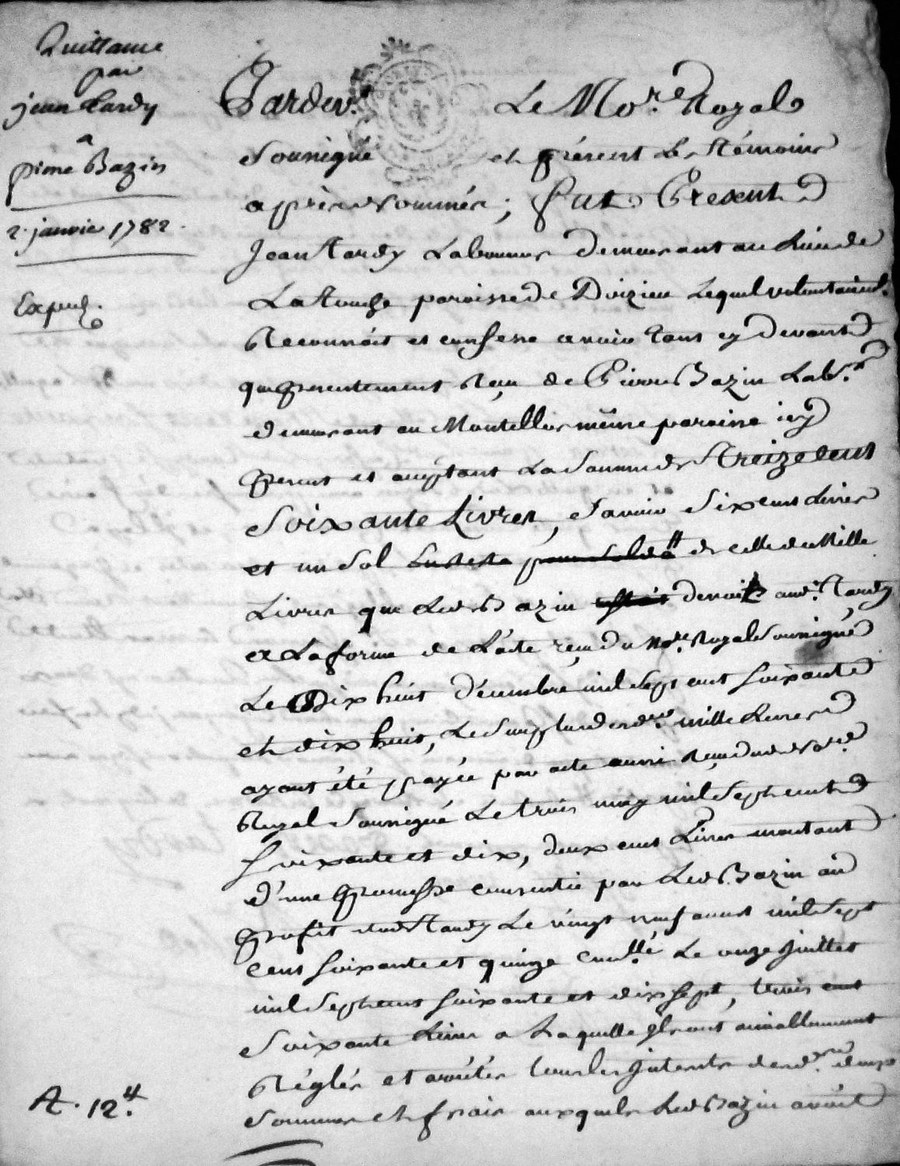 Quittance
par
jean tardy
a
pierre Bazin
2. janvie 1782.
Expedi.
Pardev.t Le No.re Royal
Soussigné et présent Les témoins
après nommés; fut Present
Jean tardy Laboureur demeurant au Lieu de
La touche paroisse de Doizieu Lequel volontairem.t
Reconnoit et confesse avoir tant cy devant
que presentement Reçu de Pierre Bazin Lab.r
demeurant au même paroisse icy
present et acceptant La Somme de treize cent
Soixante Livres, Savoir Six cent Livres
et un Sol de celle de Mille
Livres que Led. Bazin devoit aud. tardy
a La forme de L'acte reçu du No.re Royal Soussigné
Le Dix huit décembre mil Sept cent Soixante
et dix huit, Le Surplus desd. mille Livres
ayant été payée par acte aussi Reçu dud. No.re
Royal Soussigné Le trois may mil Sept cent
Soixante et dix, deux cent Livres montant
d'une promesse consentie par Led. Bazin au
profit dud. tardy Le vingt neuf aoust mil Sept
cent Soixante et quinze Le onze juillet
mil Sept cent Soixante et dix Sept, trois cent
Soixante Livres a Laquelle ils ont amiallement
Réglés et arrêtés tous les Interets desd. deux
Sommes et frais auxquels Led. Bazin avoit
A. 12.